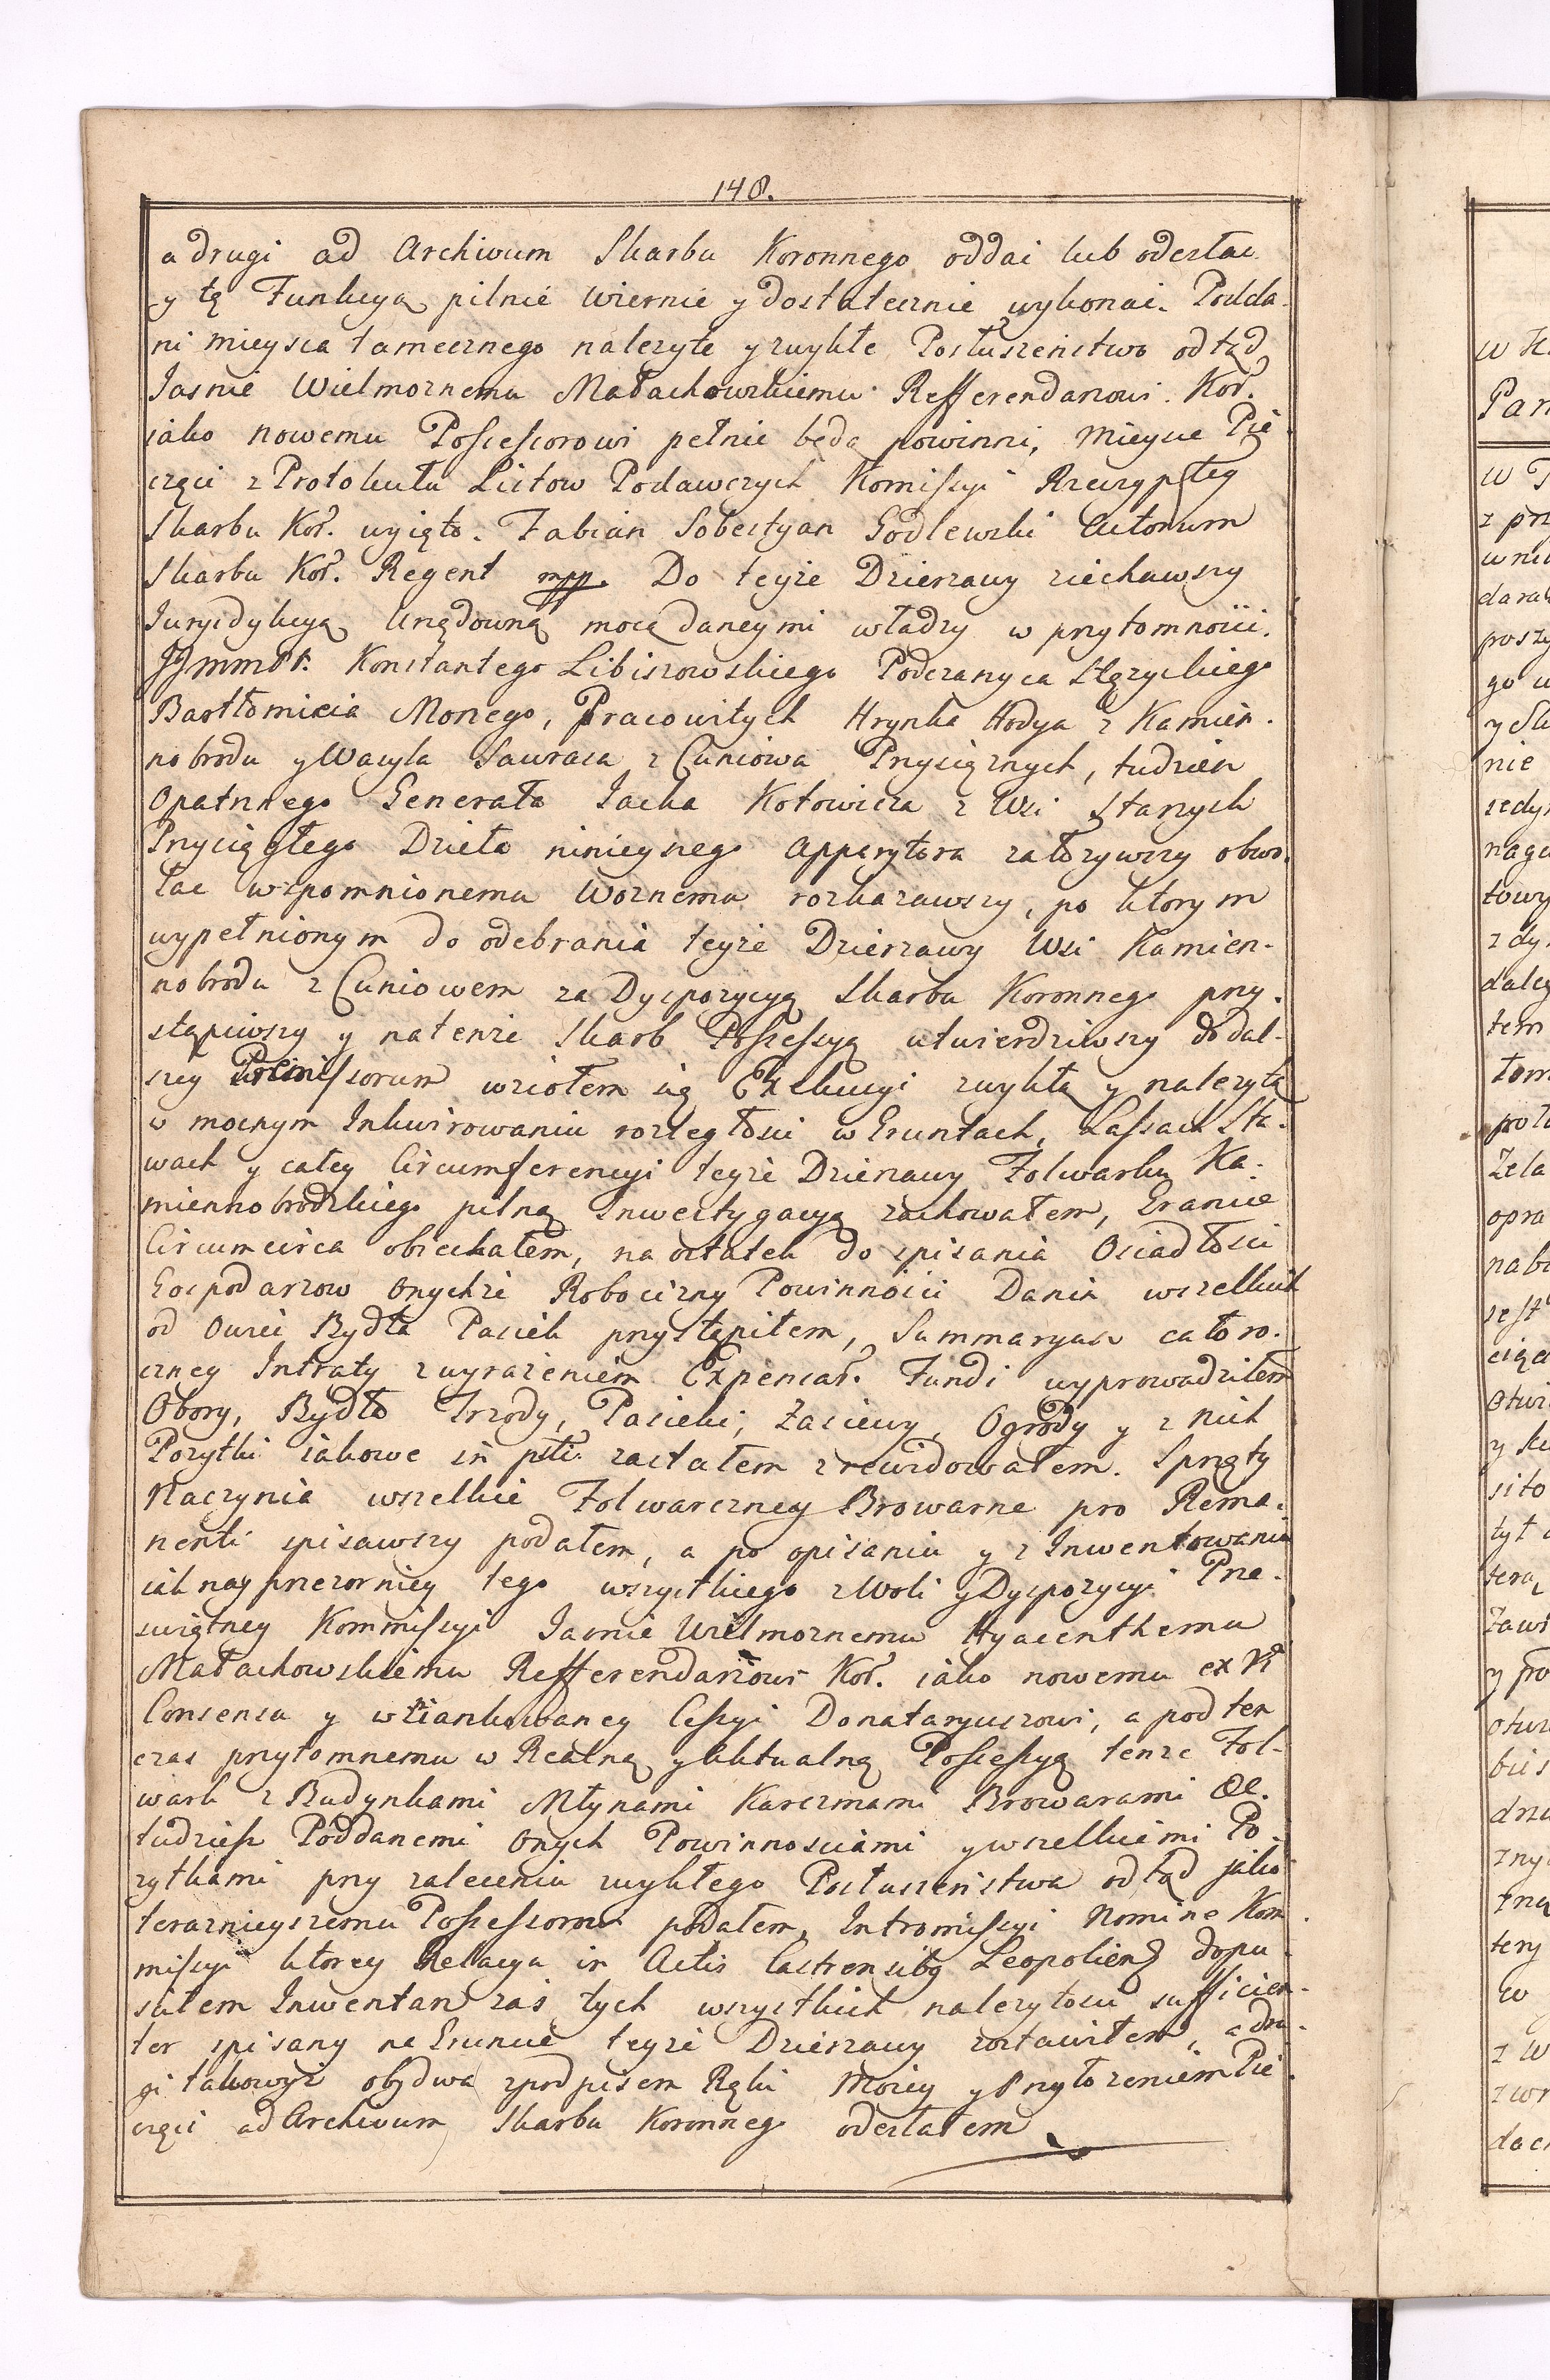 148.
a drugi ad Archivum Skarbu Koronnego oddać lub odesłać
y tę Funkcyą pilnie wiernie y dostatecznie wykonać. Podda-
ni mieysca tamecznego należyte y zwykłe Posłuszeństwo odtąd
Jasnie Wielmoznemu Małachowskiemu Refferendarzowi Kor.
iako nowemu Possessorowi pełnić będą powinni, mieysce Pie-
częci z Protokułu Listow Podawczych Komissyi Rzeczyptey
Skarbu Kor. wyięto. Fabian Sobestyan Godlewski Actorum
Skarbu Kor. Regent mpp. Do teyże Dzierzawy ziechawszy
Jurysdykcyą Urzędowną mocą daney mi władzy w przytomności
JJmmPP. Konstantego Libiszowskiego Podczaszyca Stęzyckiego
Bartłomieia Morzego, Pracowitych Hrynka Hodya z Kamien-
nobrodu y Wasyla Sawrasa z Cuniowa Przysięznych, tudzież
Opatrznego Generała Jacka Kotowicza z Wsi Starzych
Przysięgłego Dzieła ninieyszego Apparytora załozywszy obwo-
łac wspomnionemu Woznemu rozkazawszy, po ktorym
wypełnionym do odebrania teyże Dzierzawy Wsi Kamien-
nobrodu z Cuniowem za Dyspozycyą Skarbu Koronnego przy-
stąpiwszy y natenże Skarb Possessyą utwierdziwszy do dal-
szey Præmissorum wziołem się Exekucyi zwykłą y nalezytą
w mocnym Inkwirowaniu rozległości w Gruntach, Lassach Sta-
wach y całey Circumferencyi teyże Dzierzawy Folwarku Ka-
miennobrodzkiego pilną Inwestygacyą zachowałem, Granice
Circumcirca obiechałem, na ostatek do spisania Osiadłości
Gospodarzow Onychże Robocizny Powinności Danin wszelkich
od Owiec Bydła Pasiek przystąpiłem, Summaryusz całoro-
czney Intraty z wyrażeniem Expensar. Fundi wyprowadziłem
Obory, Bydło Trzody, Pasieki, Zasiewy, Ogrody y z nich
Pozytki iakowe in pti zastałem zrewidowałem. Sprzęty
Naczynia wszelkie Folwarczne y Browarne pro Rema-
nenti spisawszy podałem, a po opisaniu y zInwentowaniu
iak nayprzezorniey tego wszystkiego z Woli y Dyspozycyi Prze-
swiętney Kommissyi Jasnie Wielmoznemu Hyacenthemu
Małachowskiemu Refferendarzowi Kor. iako nowemu ex vi
Consensu y wziankowaney Cessyi Donataryuszowi, a pod ten
czas przytomnemu w Realną y Aktualną Possessyą tenże Fol-
wark z Budynkami Młynami Karczmami Browarami &c.
tudziesz Poddanemi Onych Powinnosciami y wszelkiemi Po-
zytkami przy zaleceniu zwykłego Posłuszeństwa odtąd jako
terazniejszemu Possessorowi podałem, Intromissyi Nomine Kom-
missyi ktorey Relacya in Actis Castrensibus Leopoliens dopu-
sciłem Inwentarz zaś tych wszystkich nalezytości sufficien-
ter spisany na Gruncie teyże Dzierzawy zostawiłem, a dru-
gi takowyż obydwa z podpisem Ręki Moiey y Przyłozeniem Pie-
częci ad Archivum Skarbu Koronnego odesłałem